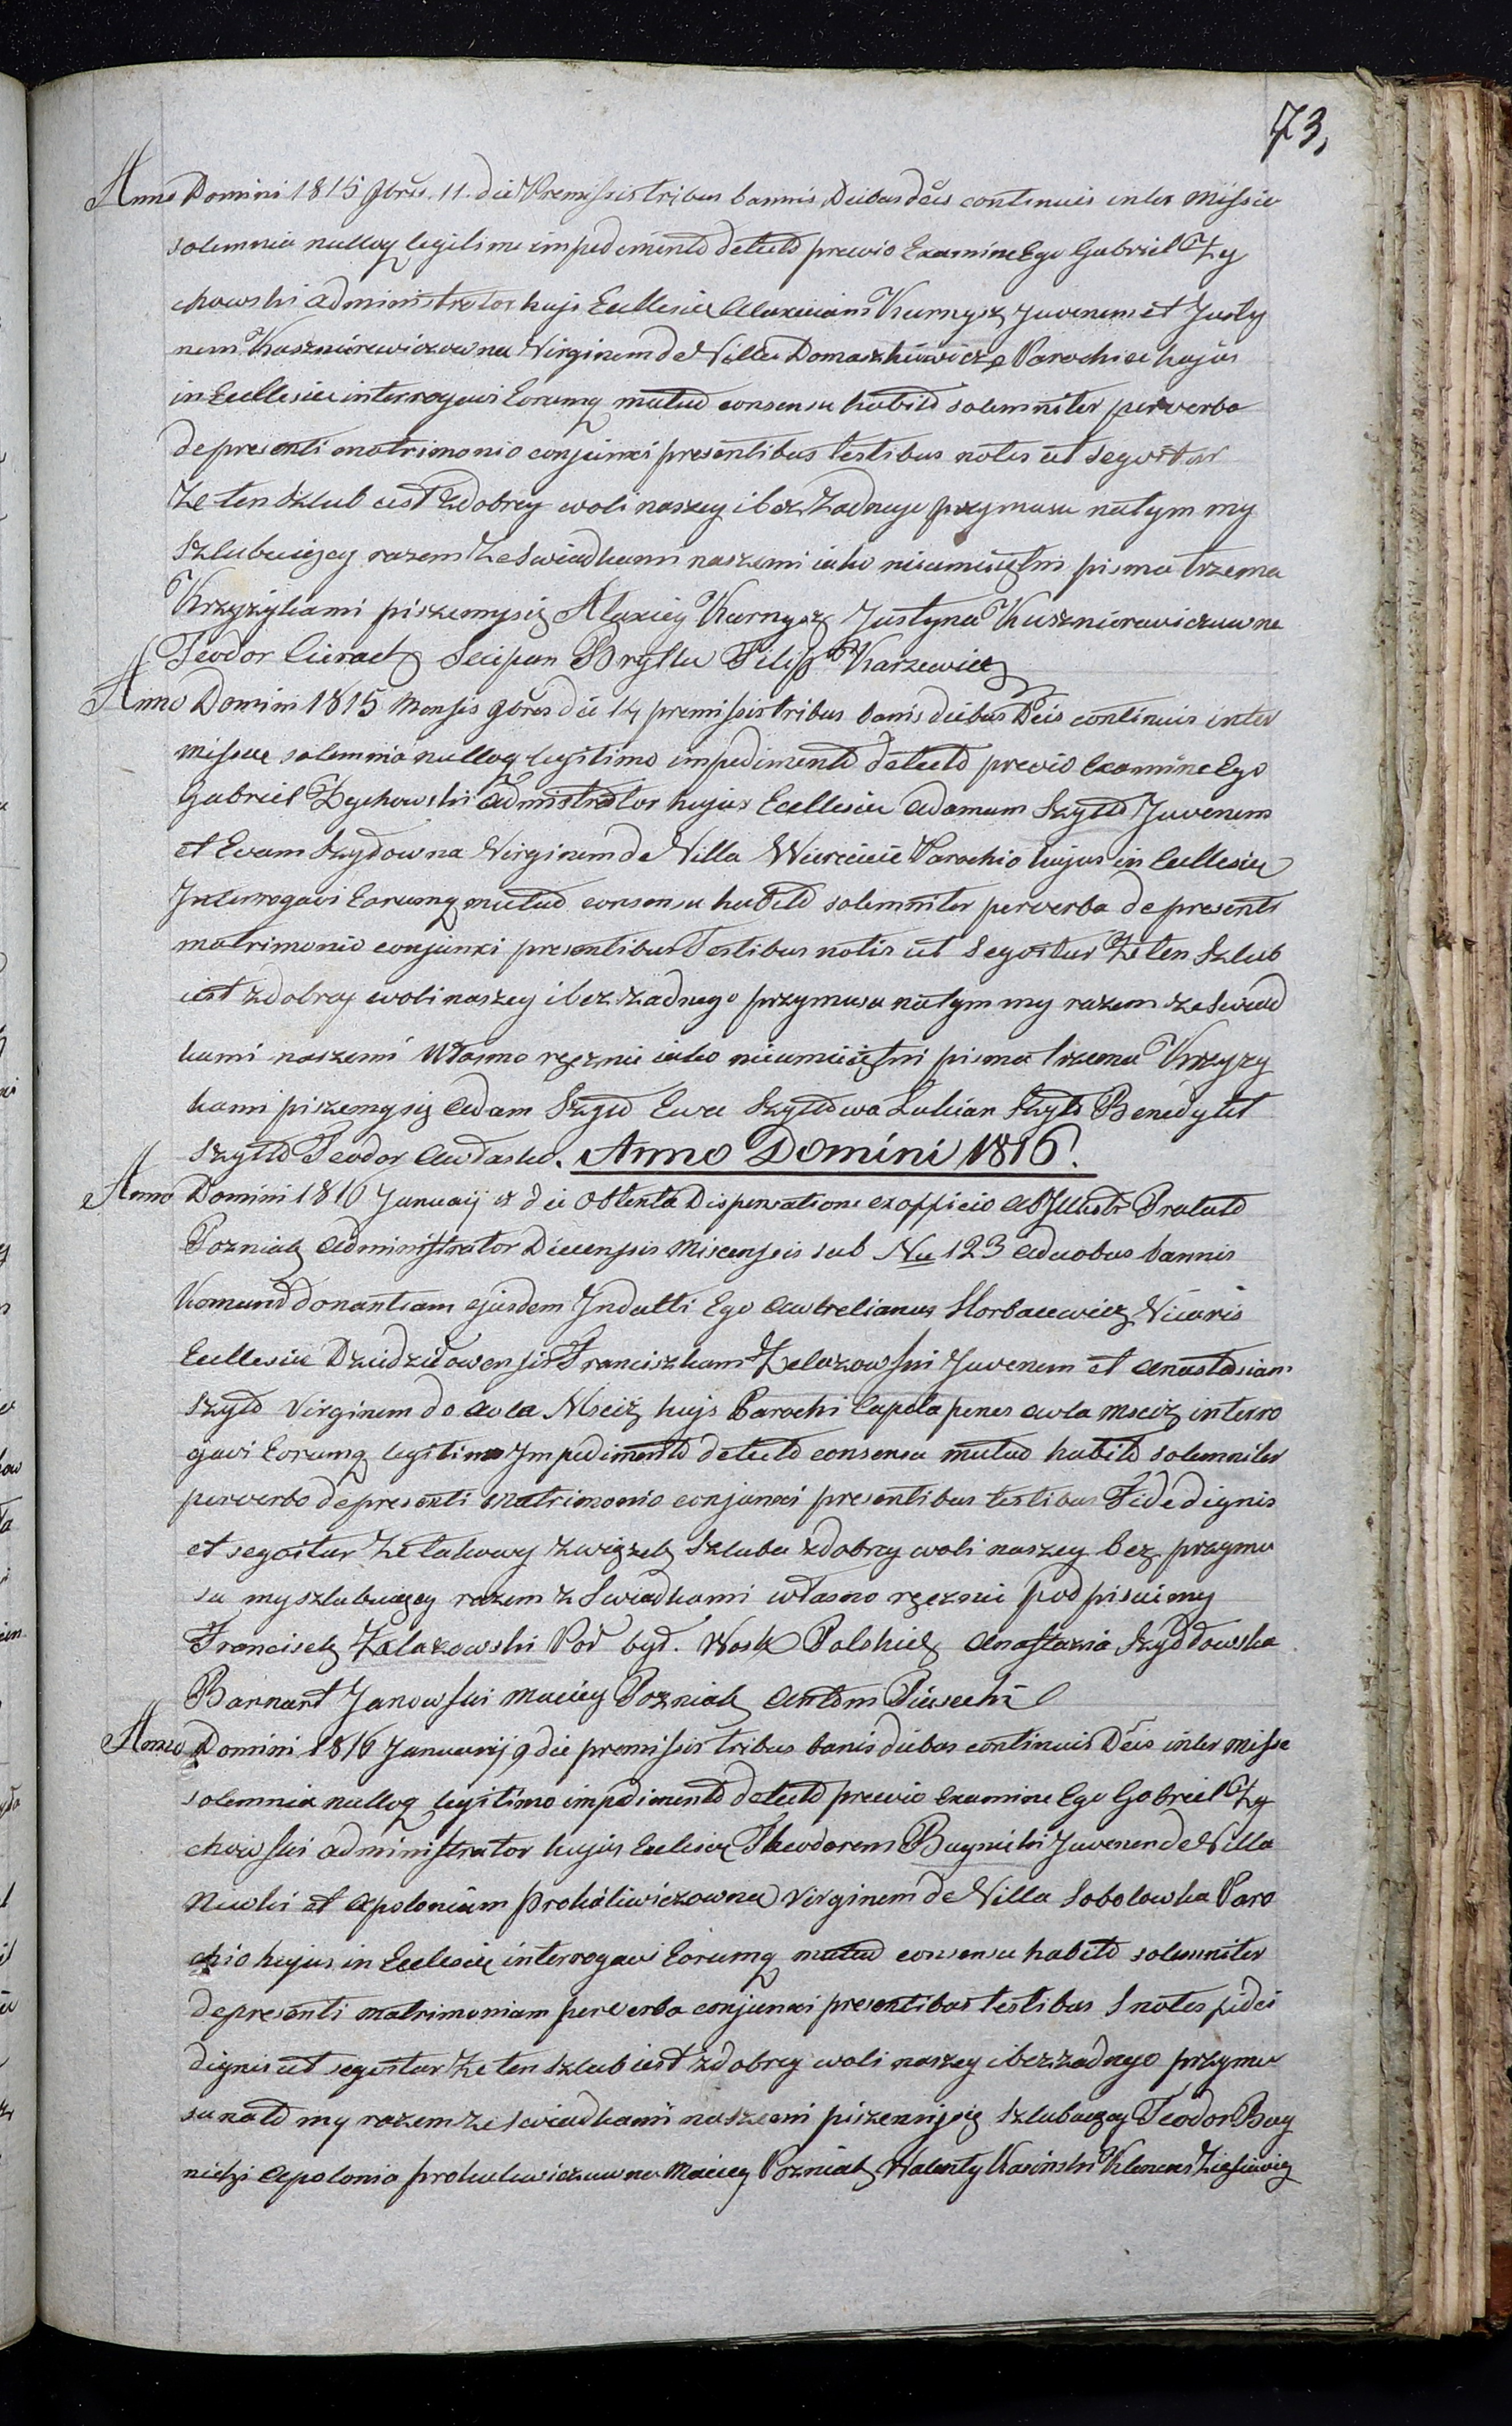 73,
Anno Domini 1815 9bris. 11. die Premissis tribus bannis Diebus dcis continuis inter Missie
solemnia nulloq legitime impedimento detecto previo Examine Ego Gabriel Zy
chowski administrator hujs Ecclesia Alaxieiam Kurnysz Juvenem et Justy
nem Kuszniérewiczowna Virginem de Villa Domaszkiewicze Parochiae hujus
in Ecclesia interrogavi Eorumq mutuo consensu habito solemniter per verba
de presenti matrimonio conjunxi presentibus testibus notis ut segvitur
Ze ten szlub iest z dobrey woli naszey i bez zadnego przymusu na tym my
Szlubuiący razem ze swiadkami naszemi iako nieumieiętni pisma trzema
Krzyżykami piszemysię Alaxiey Kurnysz Justyna Kuszniérewiczuwna
Teodor Secipan Bryllu Filip Karzewicz
Anno Domini 1815 Mensis 9bres die 14 premissis tribus banis diebus Dcis continuis inter
missae solemnia nulloq legitimo impedimento detecto previo Examine Ego
Gabriel Zychowski Administrator hujus Ecclesia Adamum Szyłło Juvenem
et Evam Szydowna Virginem de Villa Wiercieie Parochio hujus in Ecclesia
Interrogavi Eorumq mutuo consensu habito solemniter per verba de presenti
matrimonio conjunxi presentibus Testibus notis ut Segvitur Ze ten Szlub
iest z dobrey woli naszey i bez zadnego przymusu na tym my razem ze Swiad
kami naszemi Własno ręcznie iako nieumieiętni pisma trzema Krzyzy
kami piszemysię Adam Szyło Ewa Szyłłowa Lukian Szyło Benedykt
Szyłło Teodor Awłasko. Anno Domini 1816.
Anno Domini 1816 Januarij die Obtenta Dispensatione ex officio ab Illustr Pralato
Pozniak Administrator Diecensis Miscensis sub No 123 a duobus bannis
donantiam ejusdem Indulti Ego Awtrelianus Horbacewicz Vicaris
Ecclesia Dziedziłowensis Franciszkam Zelazowski Juvenem et Anastasiam
Szyło Virginem de Aula Mściż hujs Parochi Capela penes Awla Msciż interro
gavi Eorumq legitimo Impedimento detecto consensu mutuo habito solemniter
per verbo de presenti matrimonio conjunxi presentibus testibus Fide dignis
et segvitur Ze takowy związek Szlubu z dobrey woli naszey bez przymu
su my szlubuiący razem z Swiadkami własno ręcznie podpisuiemy
Franciszek Zelazowski Por był. Wosk Polskich Anastazia Szydłowska
Barnart Janowski Maciey Pozniak Antoni Piasecki
Anno Domini 1816 Januarij 9 die premissis tribus banis diebus continuis Dcis inter misse
solemnia nulloq legitimo impedimento detecto previo Examine Ego Gabriel Zy
chowski administrator hujus Eclesia Theodorem Buynicki Juvenem de Villa
Niwki et Apoloniam Prokuliwiczowna Virginem de Villa Sobolowka Paro
chio hujus in Eclesia interrogavi Eorumq mutuo consensu habito solemniter
de presenti matrimoniam per verba conjunxi presentibus testibus notes fidei
dignis ut segvitur Ze ten szlub iest z dobrey woli naszey i bez zadnego przymu
su na to my razem ze swiadkami naszemi piszemysię szlubuiący Teodor Buy
nicki Apolonia prokulewiczuwna Maciey Pozniak Walenty Kasinski Klemens